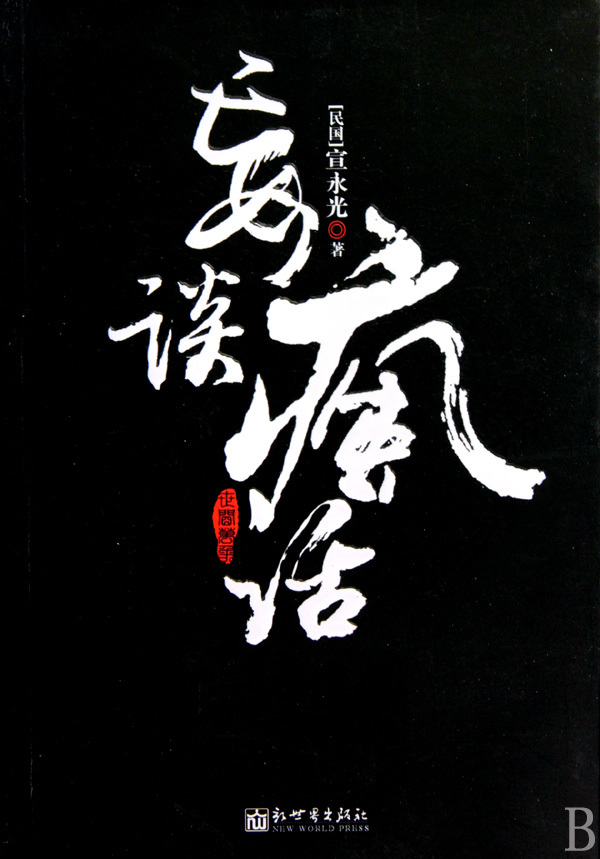 妄谈
疯话
[民国]宣永光◎著
新世界出版社
NEW WORLD PRESS
B